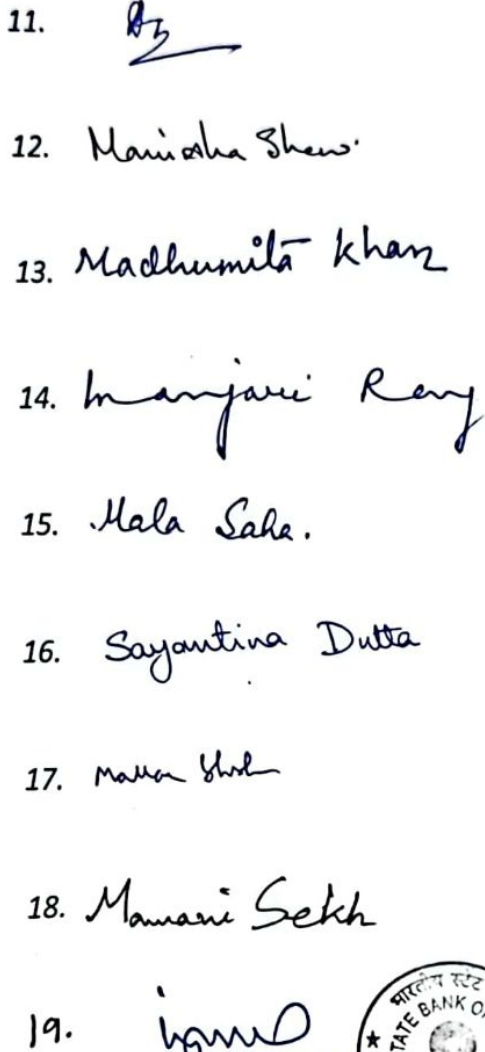 11.
12. Manisha Shaw.
13. Madhumita Khan
14. Manjari Roy
15. Mala Saha.
16. Sayantina Dutta
17.
18. Mamani Sekh
19.
भारतीय स्टेट
STATE BANK OF